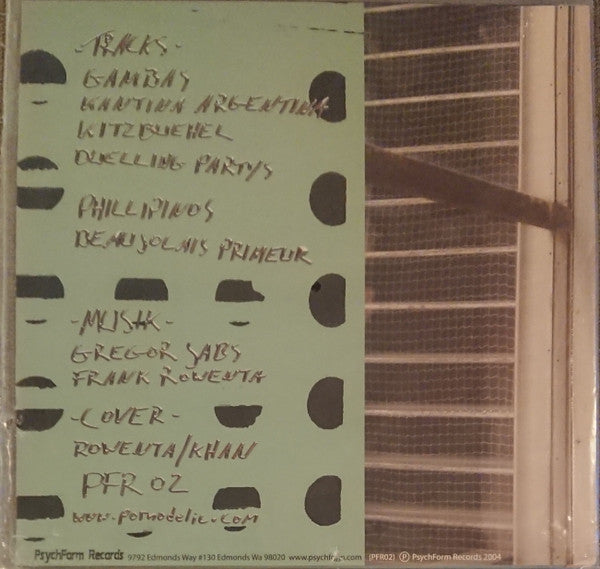 -TRACKS-
GAMBAS
KANTINA ARGENTINA
KITZBUEHEL
DUELLING PARTYS
PHILLIPINOS
BEAUJOLAIS PRIMEUR
-MUSIK-
GREGOR SABS
FRANK ROWENTA
-COVER-
ROWENTA/KHAN
PFR 02
www.pornodelic.com
PsychForm Records 9792 Edmonds Way #130 Edmonds Wa 98020 www.psychform.com (PFR02) Ⓟ PsychForm Records 2004